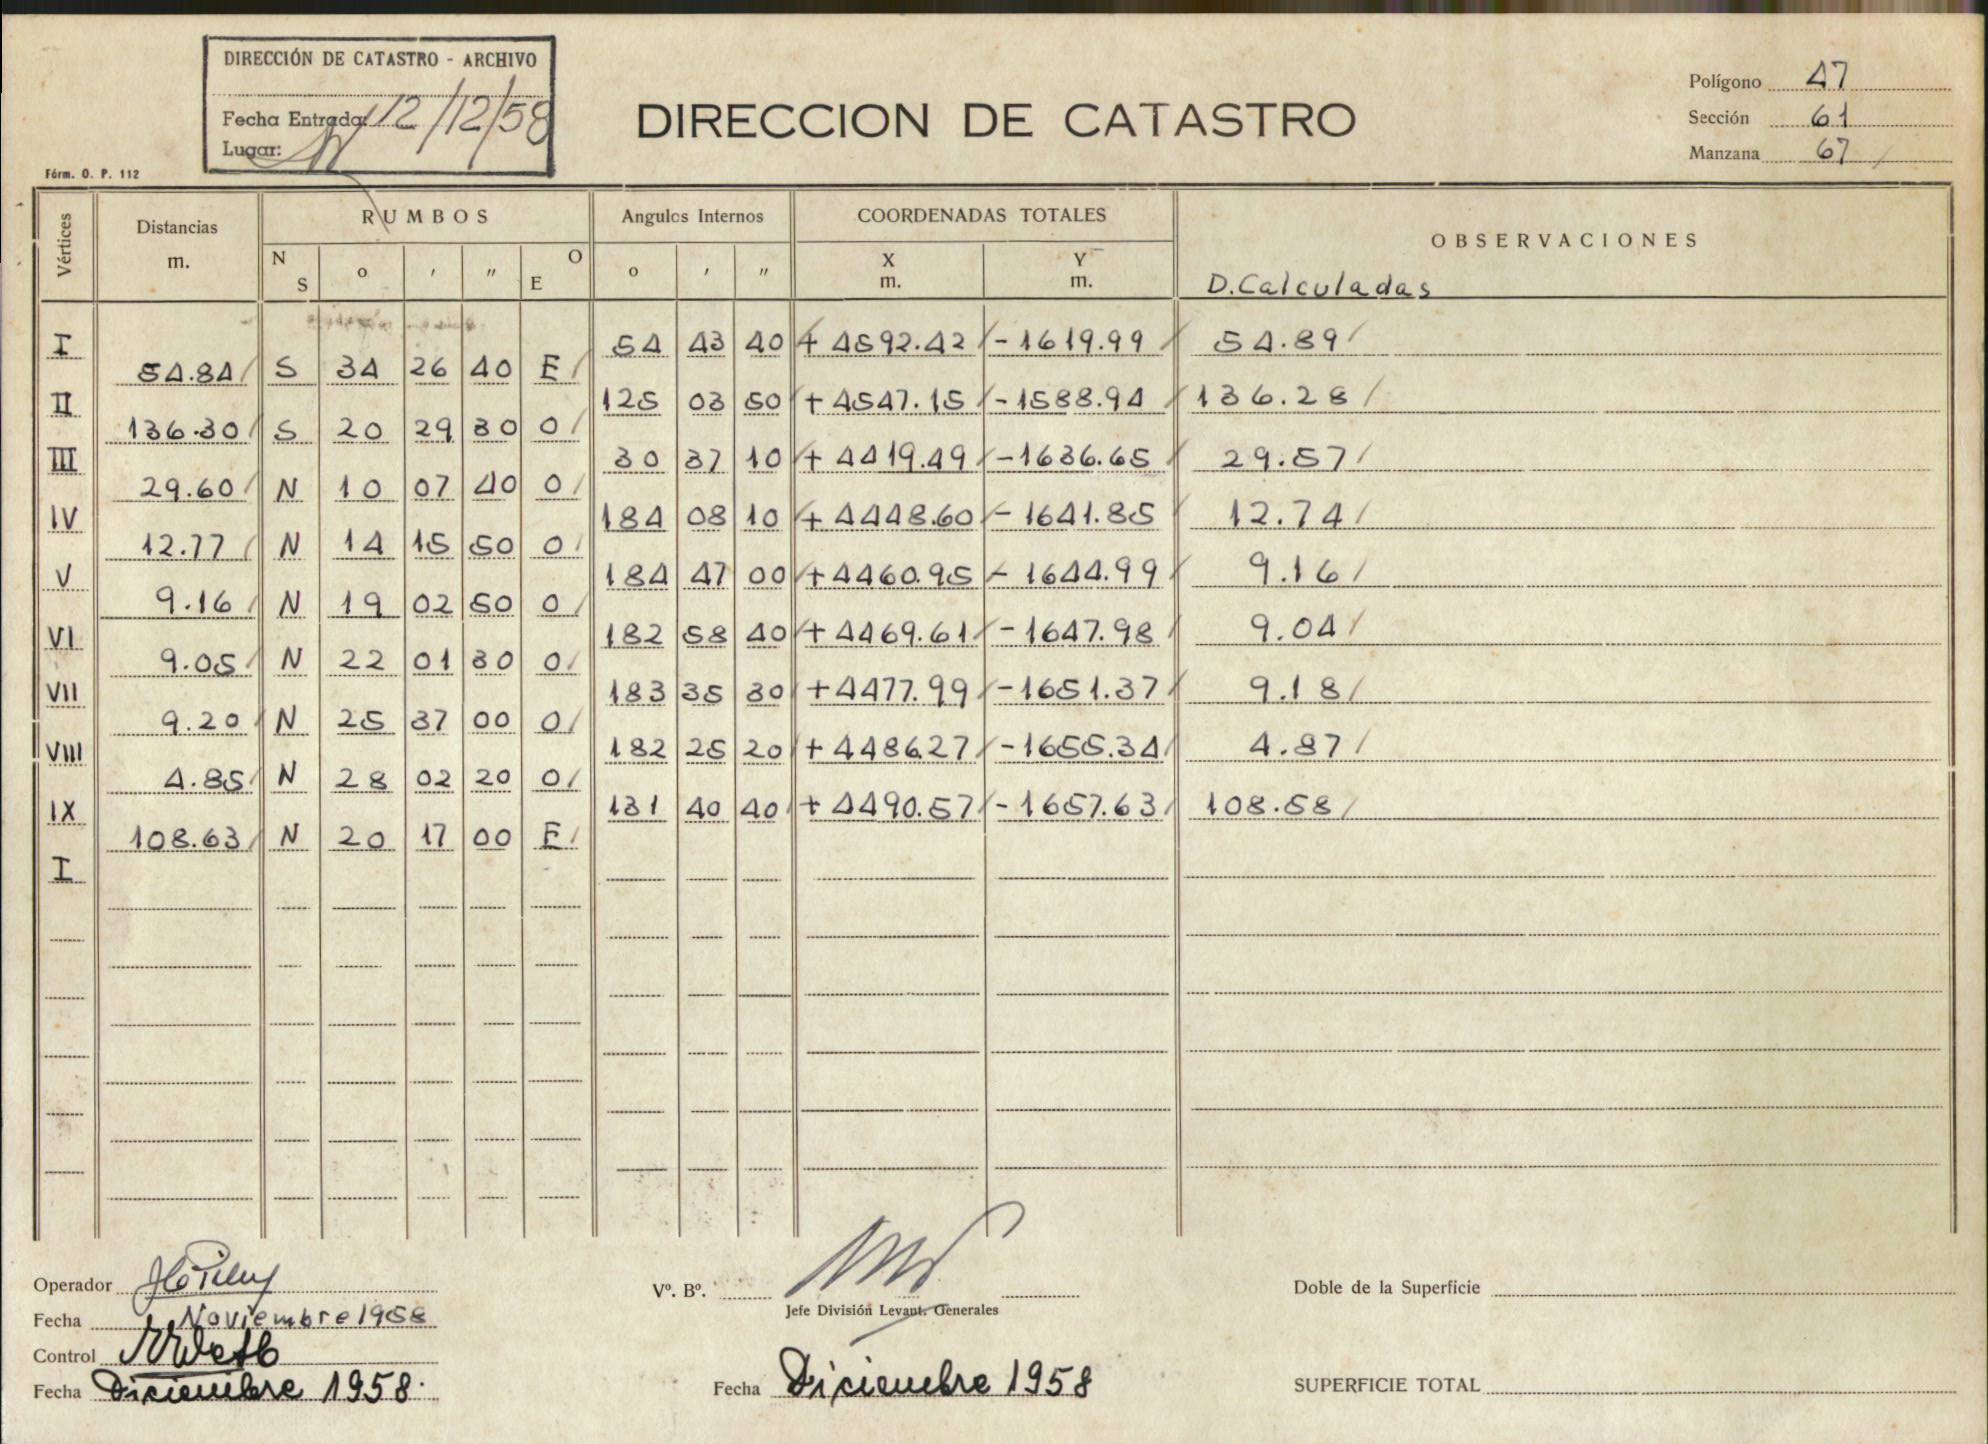 DIRECCIÓN DE CATASTRO - ARCHIVO
Fecha Entrada: 12/12/58
Lugar:
Fórm. O. P. 112
DIRECCION DE CATASTRO
Polígono 47
Sección 61
Manzana 67
Vértices Distancias m. RUMBOS N S o ′ ″ O E Angulos Internos o ′ ″ COORDENADAS TOTALES X m. Y m. OBSERVACIONES
D. Calculadas
I 54 43 40 + 4592.42 - 1619.99 54.89
54.84 S 34 26 40 E
II 125 03 50 + 4547.15 - 1588.94 136.28
136.30 S 20 29 30 O
III 30 37 10 + 4419.49 - 1636.65 29.57
29.60 N 10 07 40 O
IV 184 08 10 + 4448.60 - 1641.85 12.74
12.77 N 14 15 50 O
V 184 47 00 + 4460.95 - 1644.99 9.16
9.16 N 19 02 50 O
VI 182 58 40 + 4469.61 - 1647.98 9.04
9.05 N 22 01 30 O
VII 183 35 30 + 4477.99 - 1651.37 9.18
9.20 N 25 37 00 O
VIII 182 25 20 + 4486.27 - 1655.34 4.87
4.85 N 28 02 20 O
IX 131 40 40 + 4490.57 - 1657.63 108.58
108.63 N 20 17 00 E
I
Operador
Fecha Noviembre 1958
Control
Fecha Diciembre 1958.
Vº. Bº.
Jefe División Levant. Generales
Fecha Diciembre 1958
Doble de la Superficie
SUPERFICIE TOTAL